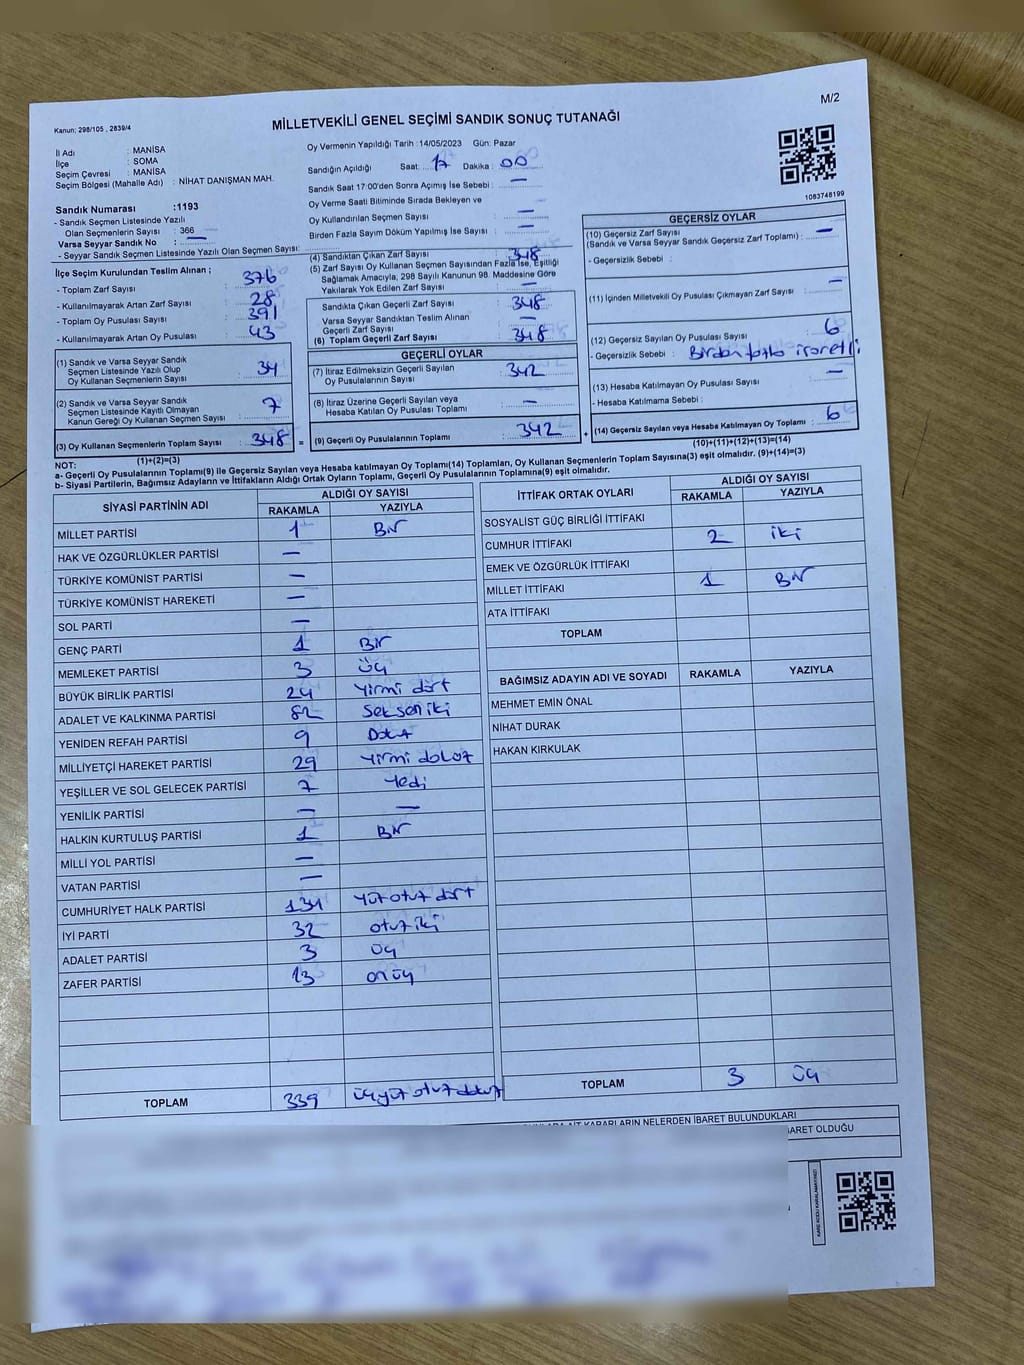 M/2
Kanun; 298/105 , 2839/4
MİLLETVEKİLİ GENEL SEÇİMİ SANDIK SONUÇ TUTANAĞI
İl Adı : MANİSA
İlçe : SOMA
Seçim Çevresi : MANİSA
Seçim Bölgesi (Mahalle Adı) : NİHAT DANIŞMAN MAH.
Sandık Numarası :1193
- Sandık Seçmen Listesinde Yazılı
Olan Seçmenlerin Sayısı : 366
Varsa Seyyar Sandık No : —
- Seyyar Sandık Seçmen Listesinde Yazılı Olan Seçmen Sayısı:
Oy Vermenin Yapıldığı Tarih : 14/05/2023 Gün: Pazar
Sandığın Açıldığı Saat: 17 Dakika : 00
Sandık Saat 17:00'den Sonra Açımış İse Sebebi : —
Oy Verme Saati Bitiminde Sırada Bekleyen ve
Oy Kullandırılan Seçmen Sayısı : —
Birden Fazla Sayım Döküm Yapılmış İse Sayısı : —
1083748199
İlçe Seçim Kurulundan Teslim Alınan ;
- Toplam Zarf Sayısı : 376
- Kullanılmayarak Artan Zarf Sayısı : 28
- Toplam Oy Pusulası Sayısı : 391
- Kullanılmayarak Artan Oy Pusulası : 43
(1) Sandık ve Varsa Seyyar Sandık
Seçmen Listesinde Yazılı Olup
Oy Kullanan Seçmenlerin Sayısı : 341
(2) Sandık ve Varsa Seyyar Sandık
Seçmen Listesinde Kayıtlı Olmayan
Kanun Gereği Oy Kullanan Seçmen Sayısı : 7
(3) Oy Kullanan Seçmenlerin Toplam Sayısı : 348 =
(1)+(2)=(3)
(4) Sandıktan Çıkan Zarf Sayısı : 348
(5) Zarf Sayısı Oy Kullanan Seçmen Sayısından Fazla İse, Eşitliği
Sağlamak Amacıyla, 298 Sayılı Kanunun 98. Maddesine Göre
Yakılarak Yok Edilen Zarf Sayısı : —
Sandıkta Çıkan Geçerli Zarf Sayısı : 348
Varsa Seyyar Sandıktan Teslim Alınan
Geçerli Zarf Sayısı : —
(6) Toplam Geçerli Zarf Sayısı : 348
GEÇERLİ OYLAR
(7) İtiraz Edilmeksizin Geçerli Sayılan
Oy Pusulasının Sayısı : 342
(8) İtiraz Üzerine Geçerli Sayılan veya
Hesaba Katılan Oy Pusulası Toplamı : —
(9) Geçerli Oy Pusulalarının Toplamı : 342 +
GEÇERSİZ OYLAR
(10) Geçersiz Zarf Sayısı
(Sandık ve Varsa Seyyar Sandık Geçersiz Zarf Toplamı) : —
- Geçersizlik Sebebi :
(11) İçinden Milletvekili Oy Pusulası Çıkmayan Zarf Sayısı : —
(12) Geçersiz Sayılan Oy Pusulası Sayısı : 6
- Geçersizlik Sebebi : Birden fazla işaretli
(13) Hesaba Katılmayan Oy Pusulası Sayısı : —
- Hesaba Katılmama Sebebi :
(14) Geçersiz Sayılan veya Hesaba Katılmayan Oy Toplamı : 6
(10)+(11)+(12)+(13)=(14)
NOT:
a- Geçerli Oy Pusulalarının Toplamı(9) ile Geçersiz Sayılan veya Hesaba katılmayan Oy Toplamı(14) Toplamları, Oy Kullanan Seçmenlerin Toplam Sayısına(3) eşit olmalıdır. (9)+(14)=(3)
b- Siyasi Partilerin, Bağımsız Adayların ve İttifakların Aldığı Ortak Oyların Toplamı, Geçerli Oy Pusulalarının Toplamına(9) eşit olmalıdır.
SİYASİ PARTİNİN ADI ALDIĞI OY SAYISI
RAKAMLA YAZIYLA
MİLLET PARTİSİ 1 Bir
HAK VE ÖZGÜRLÜKLER PARTİSİ —
TÜRKİYE KOMÜNİST PARTİSİ —
TÜRKİYE KOMÜNİST HAREKETİ —
SOL PARTİ —
GENÇ PARTİ 1 Bir
MEMLEKET PARTİSİ 3 üç
BÜYÜK BİRLİK PARTİSİ 24 Yirmi dört
ADALET VE KALKINMA PARTİSİ 82 Seksen iki
YENİDEN REFAH PARTİSİ 9 Dokuz
MİLLİYETÇİ HAREKET PARTİSİ 29 Yirmi dokuz
YEŞİLLER VE SOL GELECEK PARTİSİ 7 Yedi
YENİLİK PARTİSİ — —
HALKIN KURTULUŞ PARTİSİ 1 Bir
MİLLİ YOL PARTİSİ —
VATAN PARTİSİ —
CUMHURİYET HALK PARTİSİ 134 Yüz otuz dört
İYİ PARTİ 32 otuz iki
ADALET PARTİSİ 3 üç
ZAFER PARTİSİ 13 on üç
TOPLAM 339 üçyüz otuz dokuz
İTTİFAK ORTAK OYLARI ALDIĞI OY SAYISI
RAKAMLA YAZIYLA
SOSYALİST GÜÇ BİRLİĞİ İTTİFAKI
CUMHUR İTTİFAKI 2 iki
EMEK VE ÖZGÜRLÜK İTTİFAKI
MİLLET İTTİFAKI 1 Bir
ATA İTTİFAKI
TOPLAM
BAĞIMSIZ ADAYIN ADI VE SOYADI RAKAMLA YAZIYLA
MEHMET EMİN ÖNAL
NİHAT DURAK
HAKAN KIRKULAK
TOPLAM 3 üç
AİT KARARLARIN NELERDEN İBARET BULUNDUKLARI
BARET OLDUĞU
KARE KODU KARALAMAYINIZ!